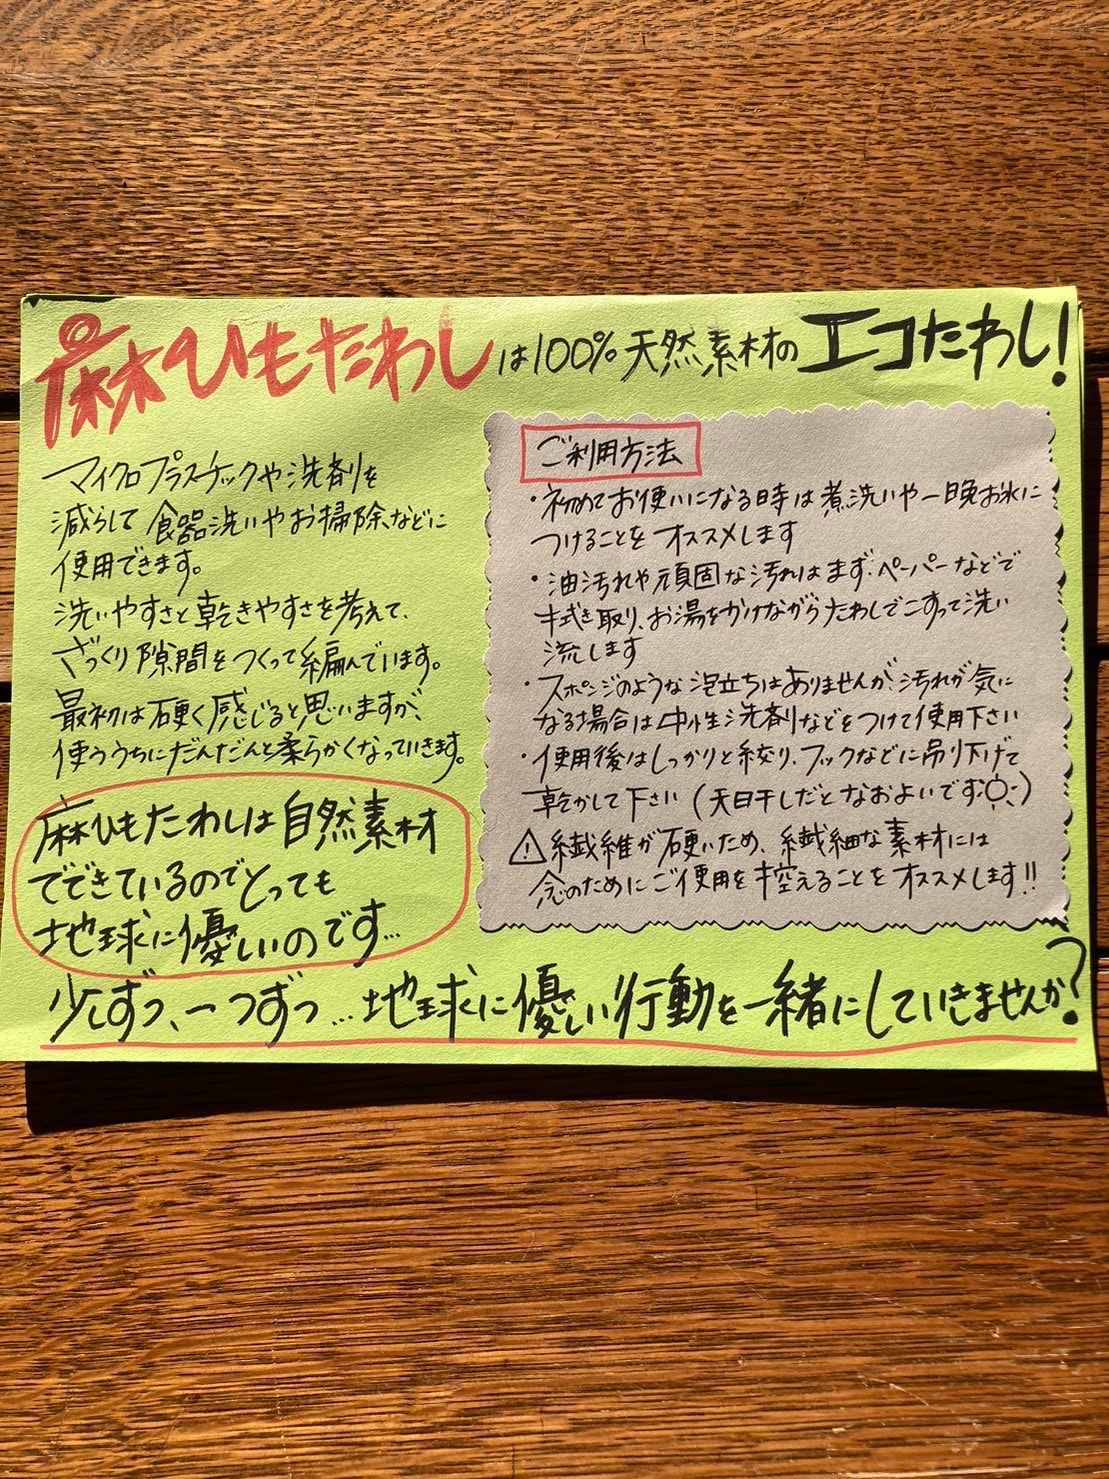 麻ひもたわしは100%天然素材のエコたわし！
マイクロプラスチックや洗剤を
減らして食器洗いやお掃除などに
使用できます。
洗いやすさと乾きやすさを考えて、
ざっくり隙間をつくって編んでいます。
最初は硬く感じると思いますが、
使ううちにだんだんと柔らかくなっていきます。
麻ひもたわしは自然素材
でできているのでとっても
地球に優しいのです…
ご利用方法
・初めてお使いになる時は煮洗いや一晩お水に
つけることをオススメします
・油汚れや頑固な汚れはまず、ペーパーなどで
拭き取り、お湯をかけながらたわしでこすって洗い
流します
・スポンジのような泡立ちはありませんが、汚れが気に
なる場合は中性洗剤などをつけて使用下さい
・使用後はしっかりと絞り、フックなどに吊り下げて
乾かして下さい(天日干しだとなおよいです)
⚠繊維が硬いため、繊細な素材には
念のためにご使用を控えることをオススメします!!
少しずつ、一つずつ…地球に優しい行動を一緒にしていきませんか？